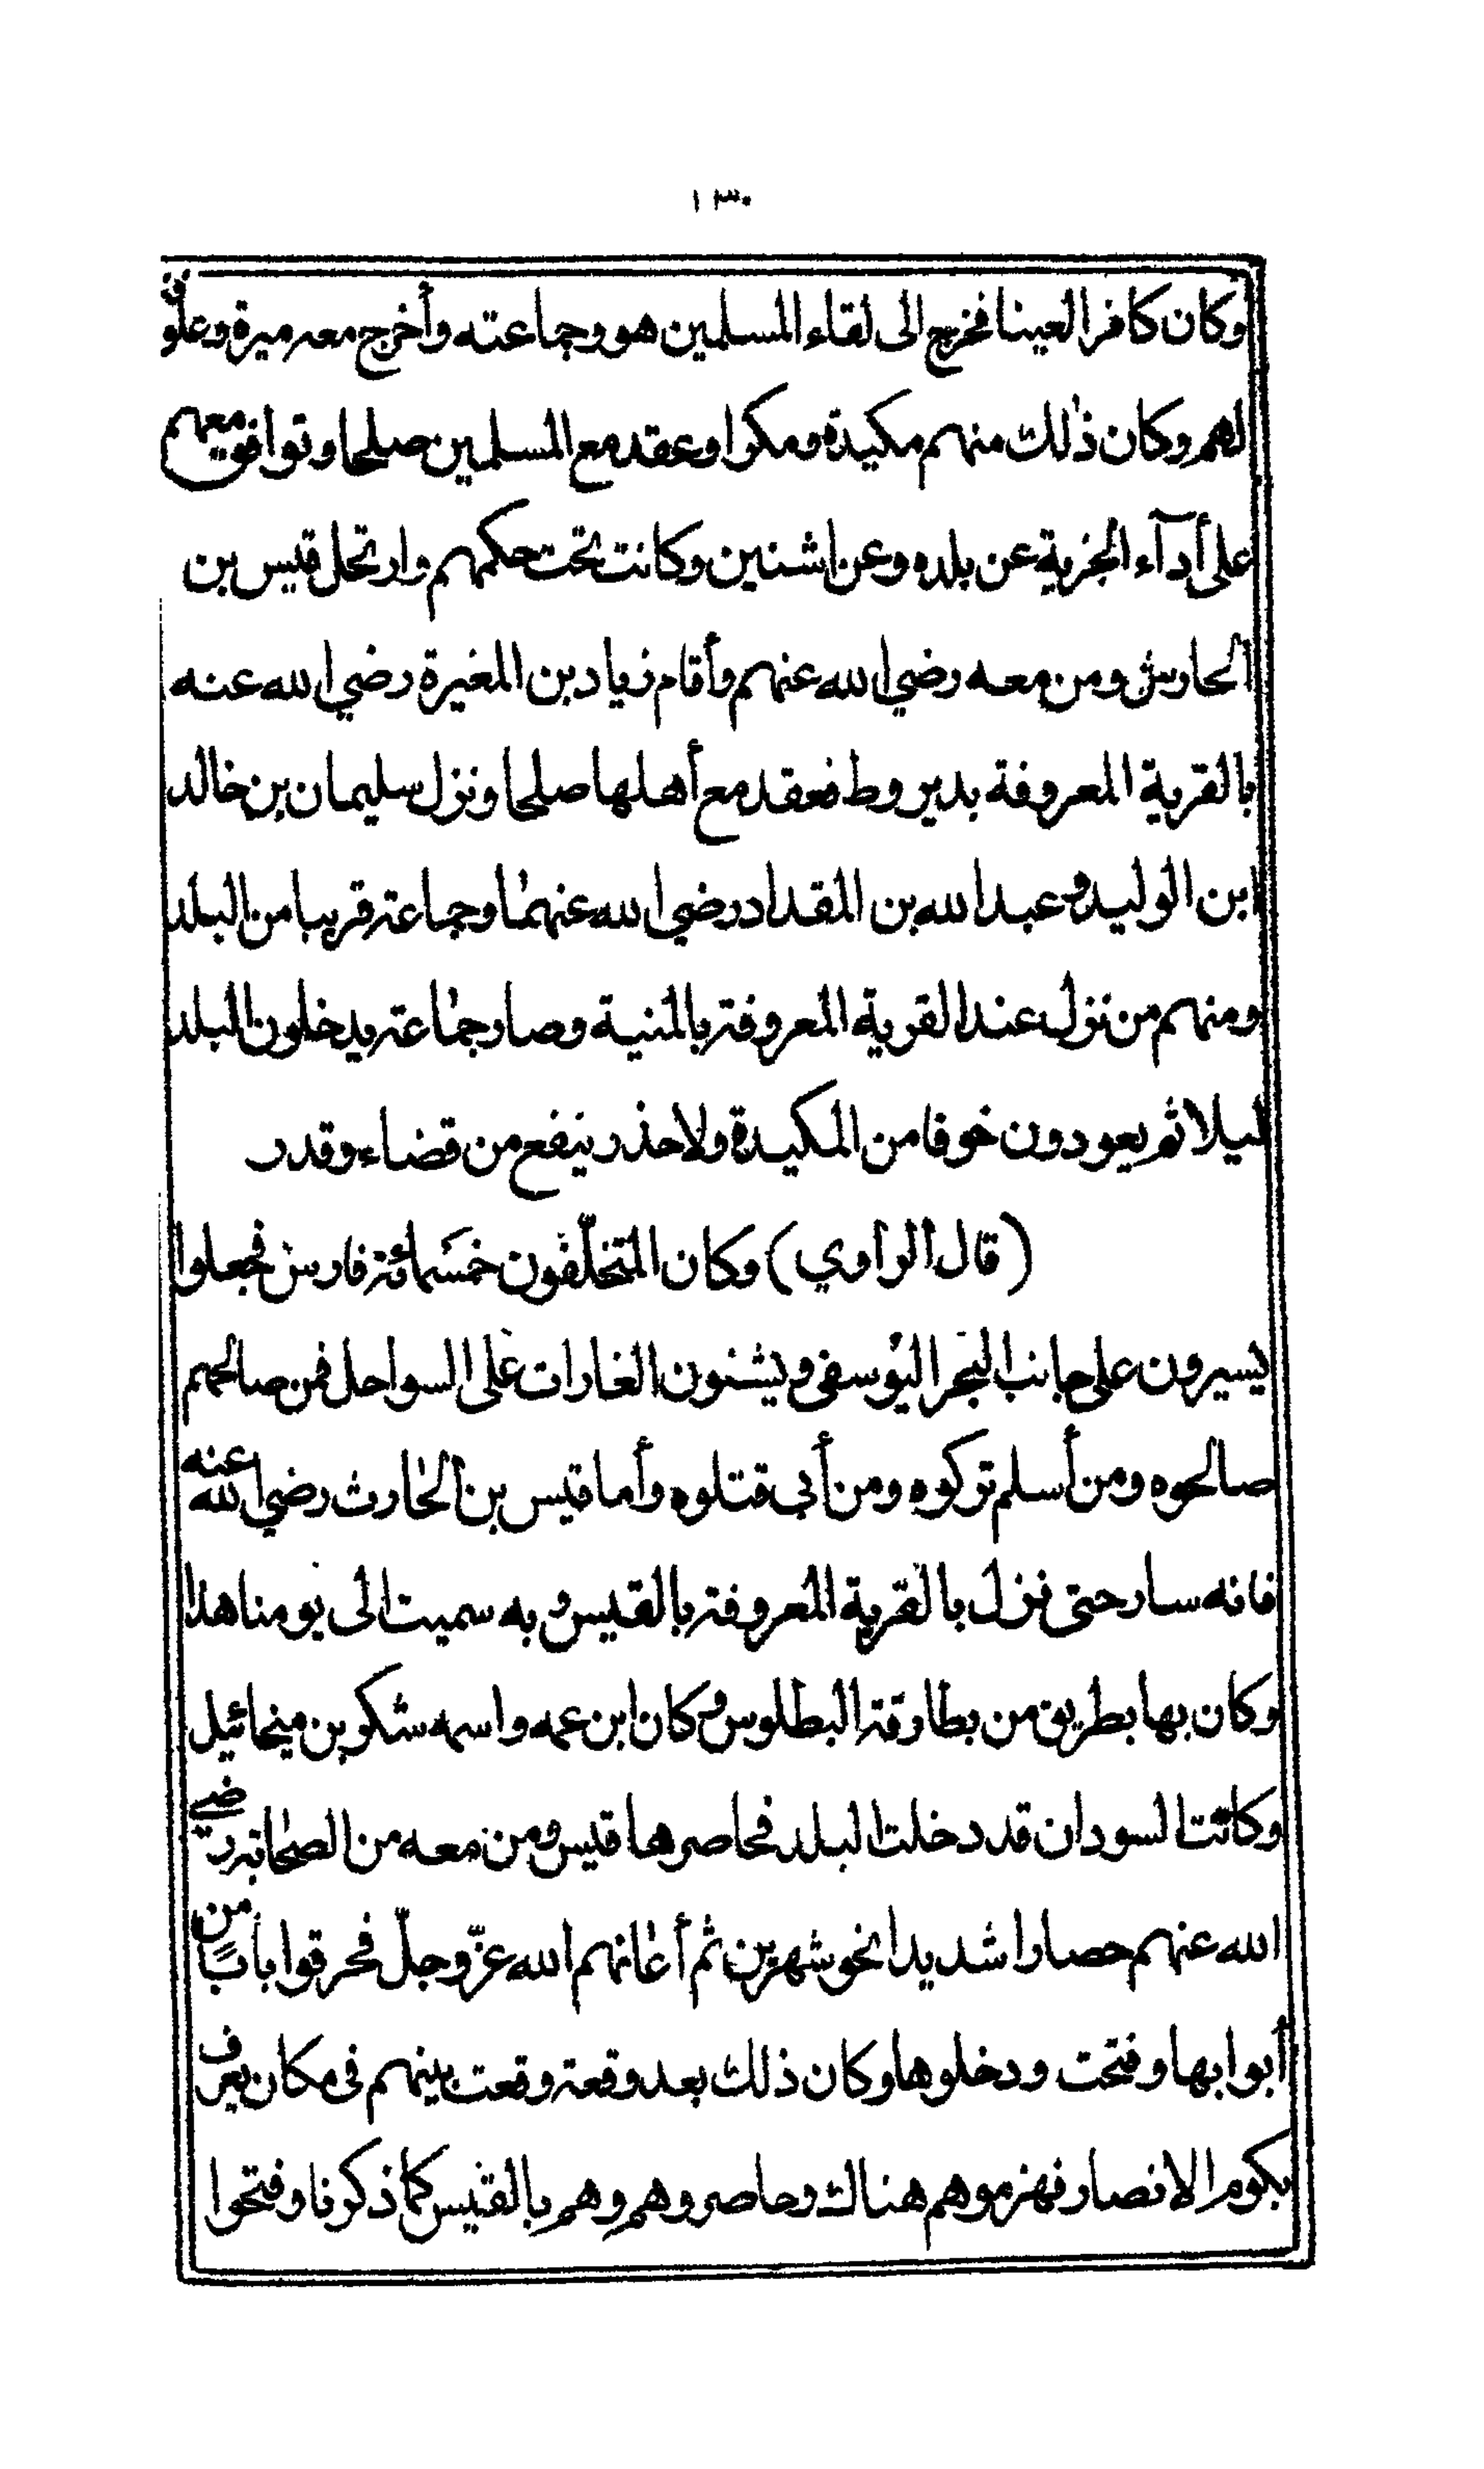 ١٣٠
وكان كافرا لعينا فخرج الى لقاء المسلمين هو وجماعته وأخرج معه ميرة وعلوفة
لهم وكان ذلك منهم مكيدة ومكرا وعقد مع المسلمين صلحا وتوافق معهم
على أدآء الجزية عن بلده وعن اشنين وكانت تحت حكمهم وارتحل قيس بن
الحارث ومن معه رضي الله عنهم وأقام زياد بن المغيرة رضي الله عنه
بالقرية المعروفة بديروط فعقد مع أهلها صلحا ونزل سليمان بن خالد
ابن الوليد وعبد الله بن المقداد رضي الله عنهما وجماعته قريبا من البلد
ومنهم من نزل عند القرية المعروفة بالمنية وصار جماعته يدخلون البلد
ليلا ثم يعودون خوفا من المكيدة ولا حذر ينفع من قضاء وقدر
(قال الراوي) وكان المتخلّفون خمسمائة فارس فجعلوا
يسيرون على جانب البحر اليوسفى ويشنون الغارات على السواحل فمن صالحهم
صالحوه ومن أسلم تركوه ومن أبى قتلوه وأما قيس بن الحارث رضي الله عنه
فانه سار حتى نزل بالقرية المعروفة بالقيس وبه سميت الى يومنا هذا
وكان بها بطريق من بطارقة البطلوس وكان ابن عمه واسمه شكور بن ميخائيل
وكانت السودان قد دخلت البلد فحاصرها قيس ومن معه من الصحابة رضي
الله عنهم حصارا شديدا نحو شهرين ثم أعانهم الله عزّ وجلّ فحرقوا بابًا من
أبوابها وفتحت ودخلوها وكان ذلك بعد وقعة وقعت بينهم فى مكان يعرف
بكوم الانصار فهزموهم هناك وحاصروهم وهم بالقيس كما ذكرنا وفتحوا